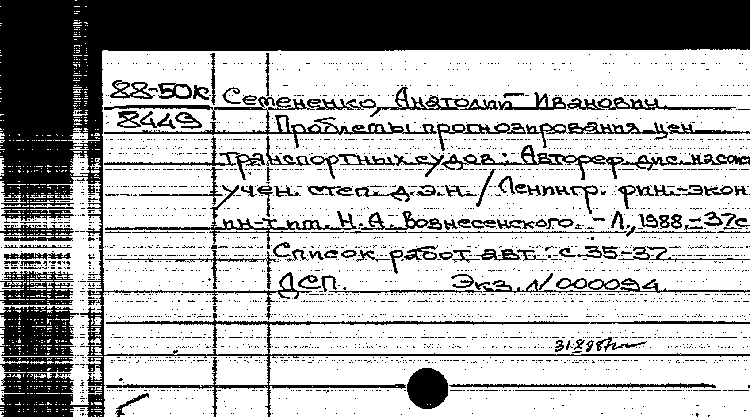 88-50к Семененко, Анатолий Иванович.
8449 Проблемы прогнозирования цен
транспортных судов: Автореф. дис. на соиск
учен. степ. д.э.н. / Ленингр. фин.-экон
ин-т им. Н.А. Вознесенского. - Л., 1988. - 37с
Список работ авт.: с. 35-37.
ДСП. Экз. N/000094